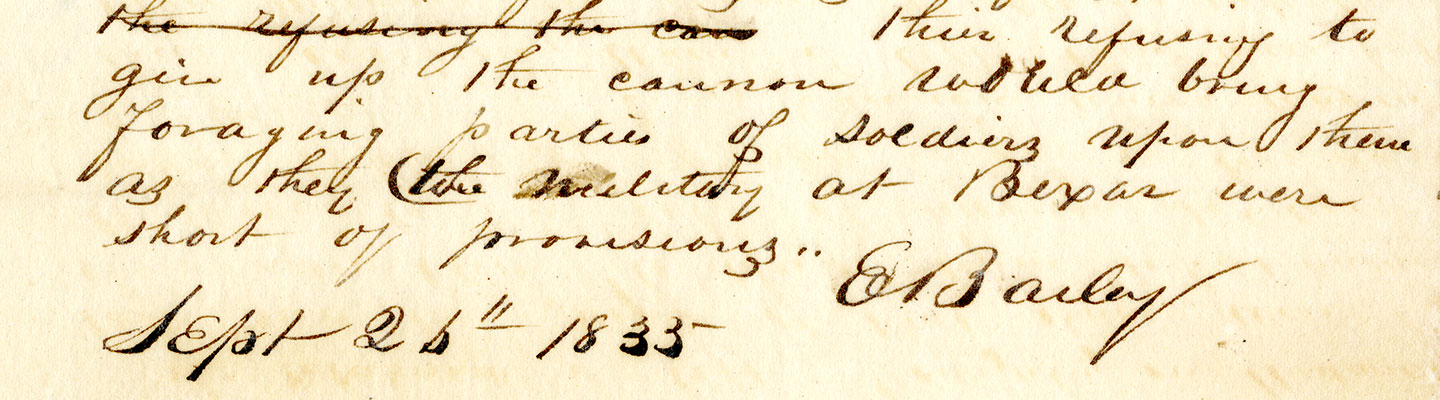 the refusing the can thier refusing to
give up the cannon would bring
foraging parties of soldiers upon them
as they (the military at Bexar were
short of provisions"
E Bailey
Sept 26" 1835